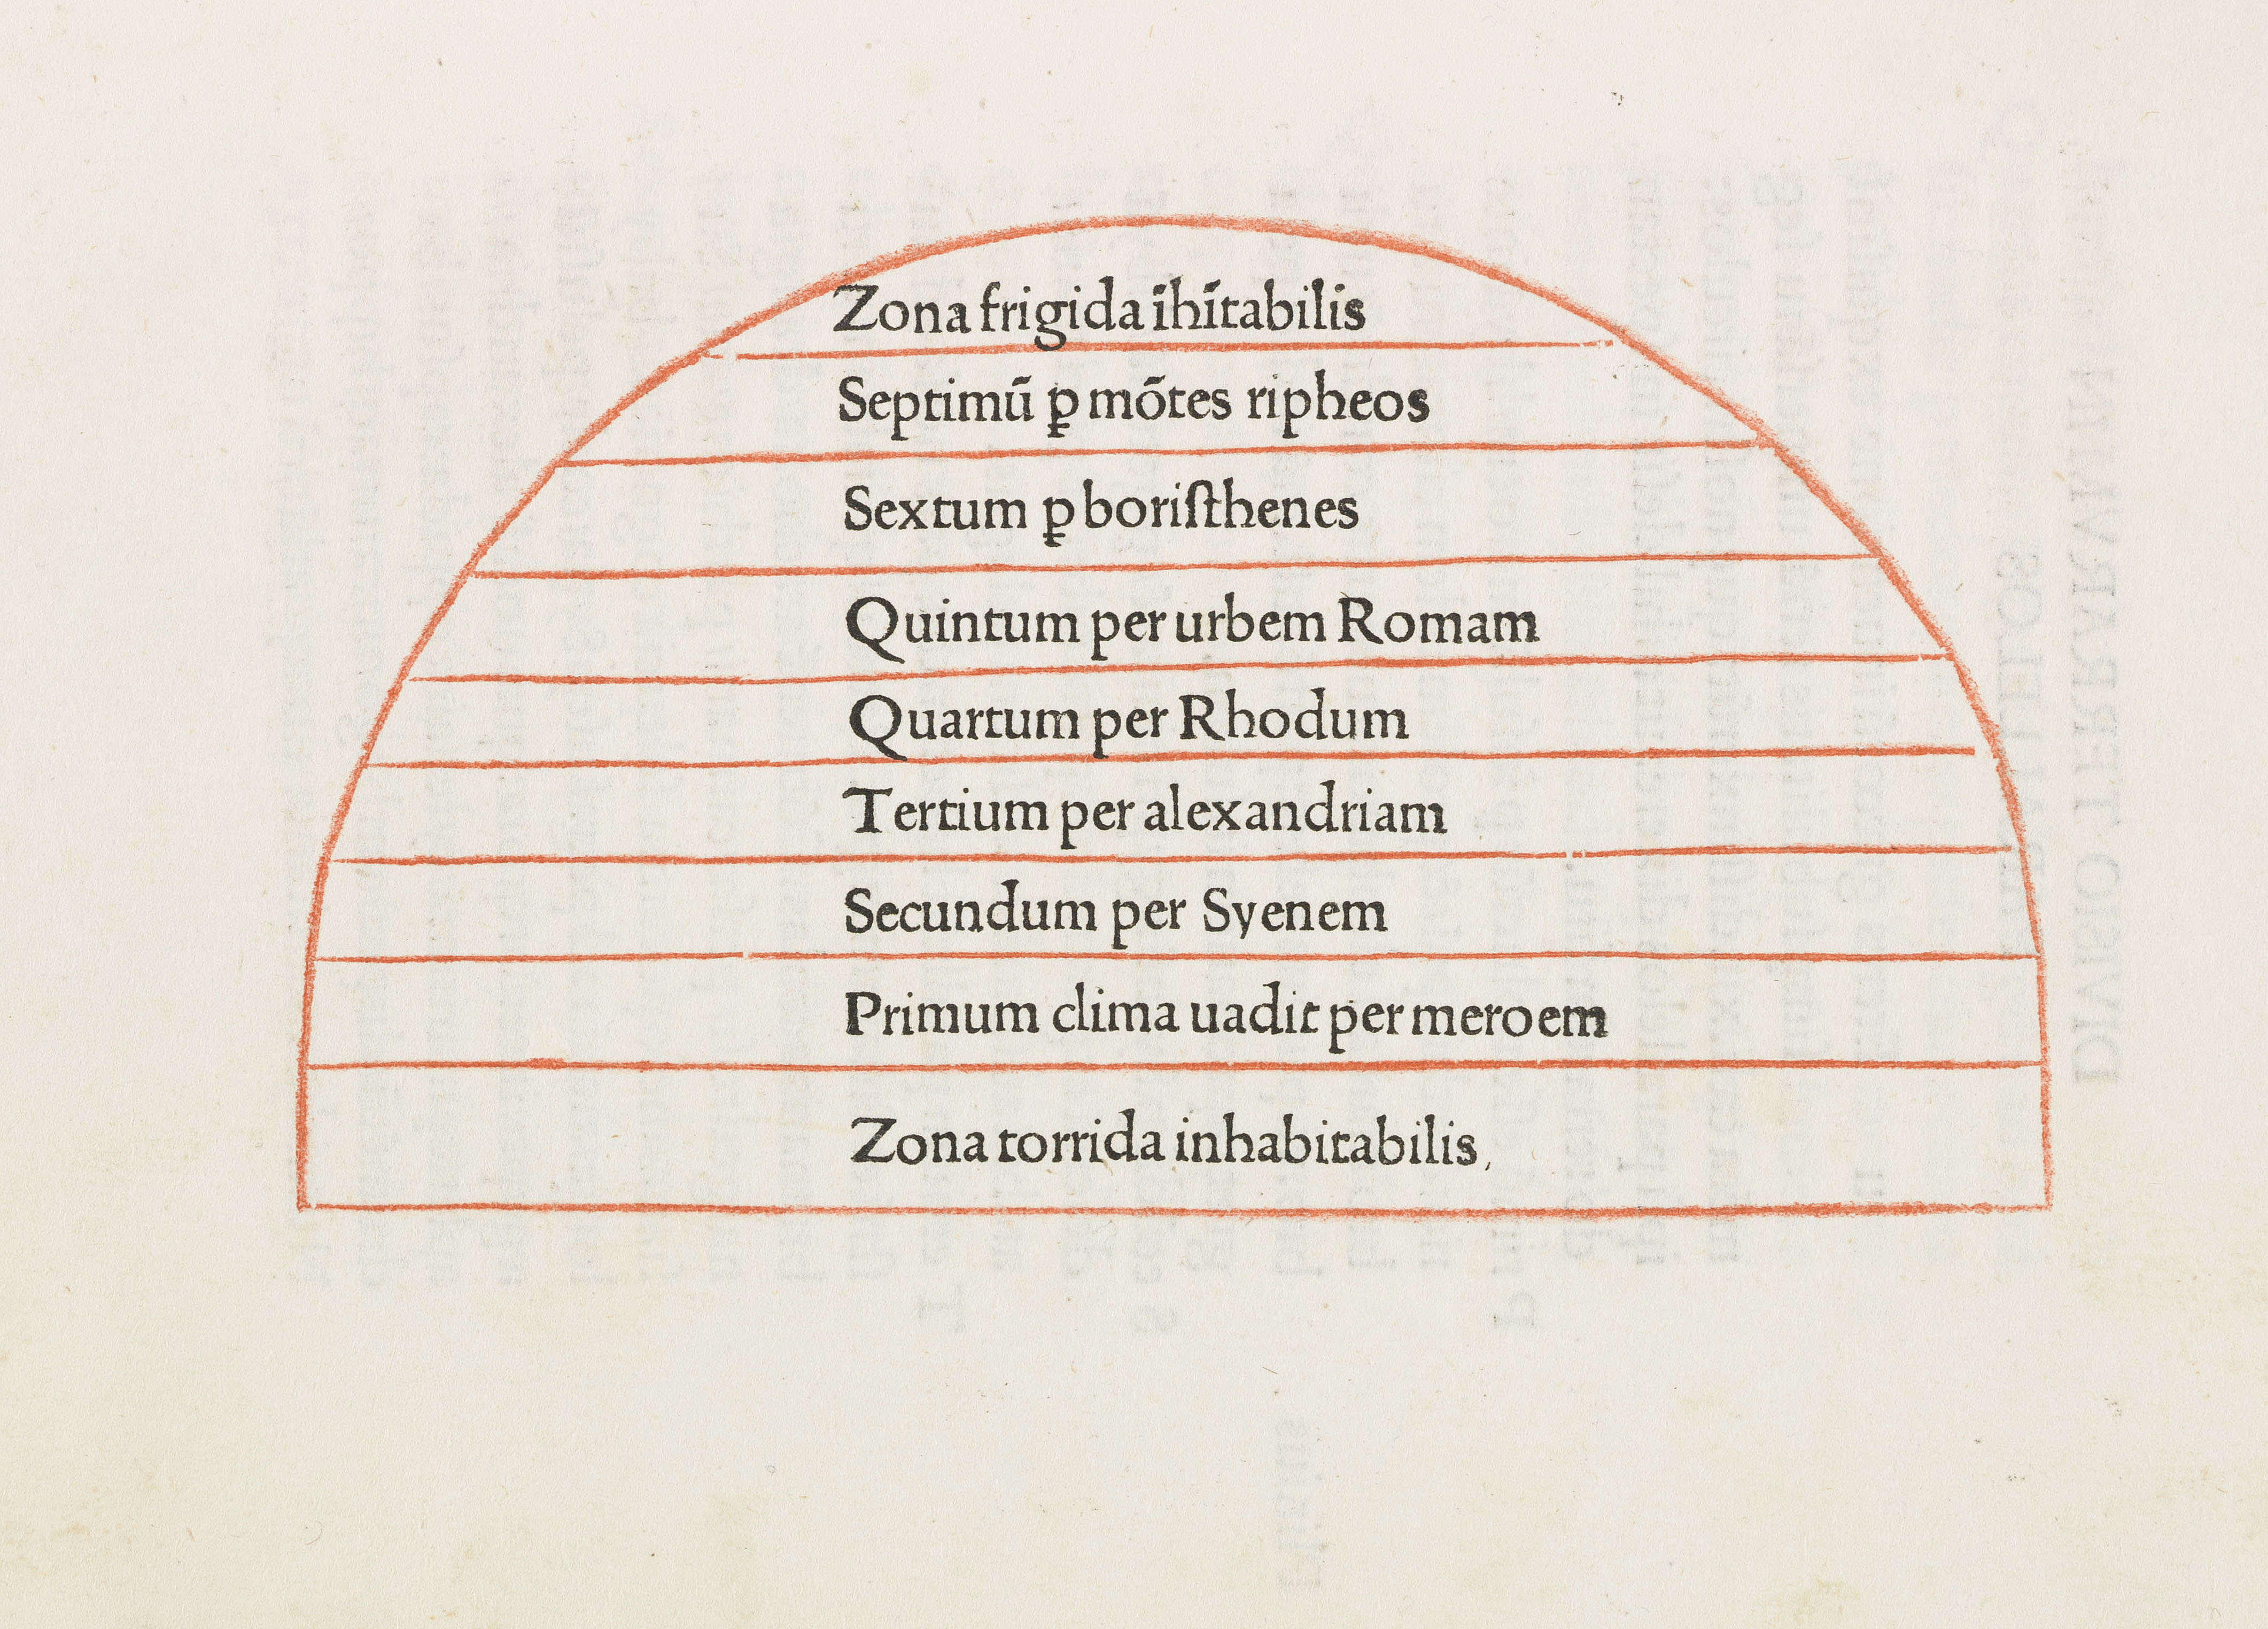 Zona frigida īhītabilis
Septimū ꝑ mōtes ripheos
Sextum ꝑ boriſthenes
Quintum per urbem Romam
Quartum per Rhodum
Tertium per alexandriam
Secundum per Syenem
Primum clima uadit per meroem
Zona torrida inhabitabilis,